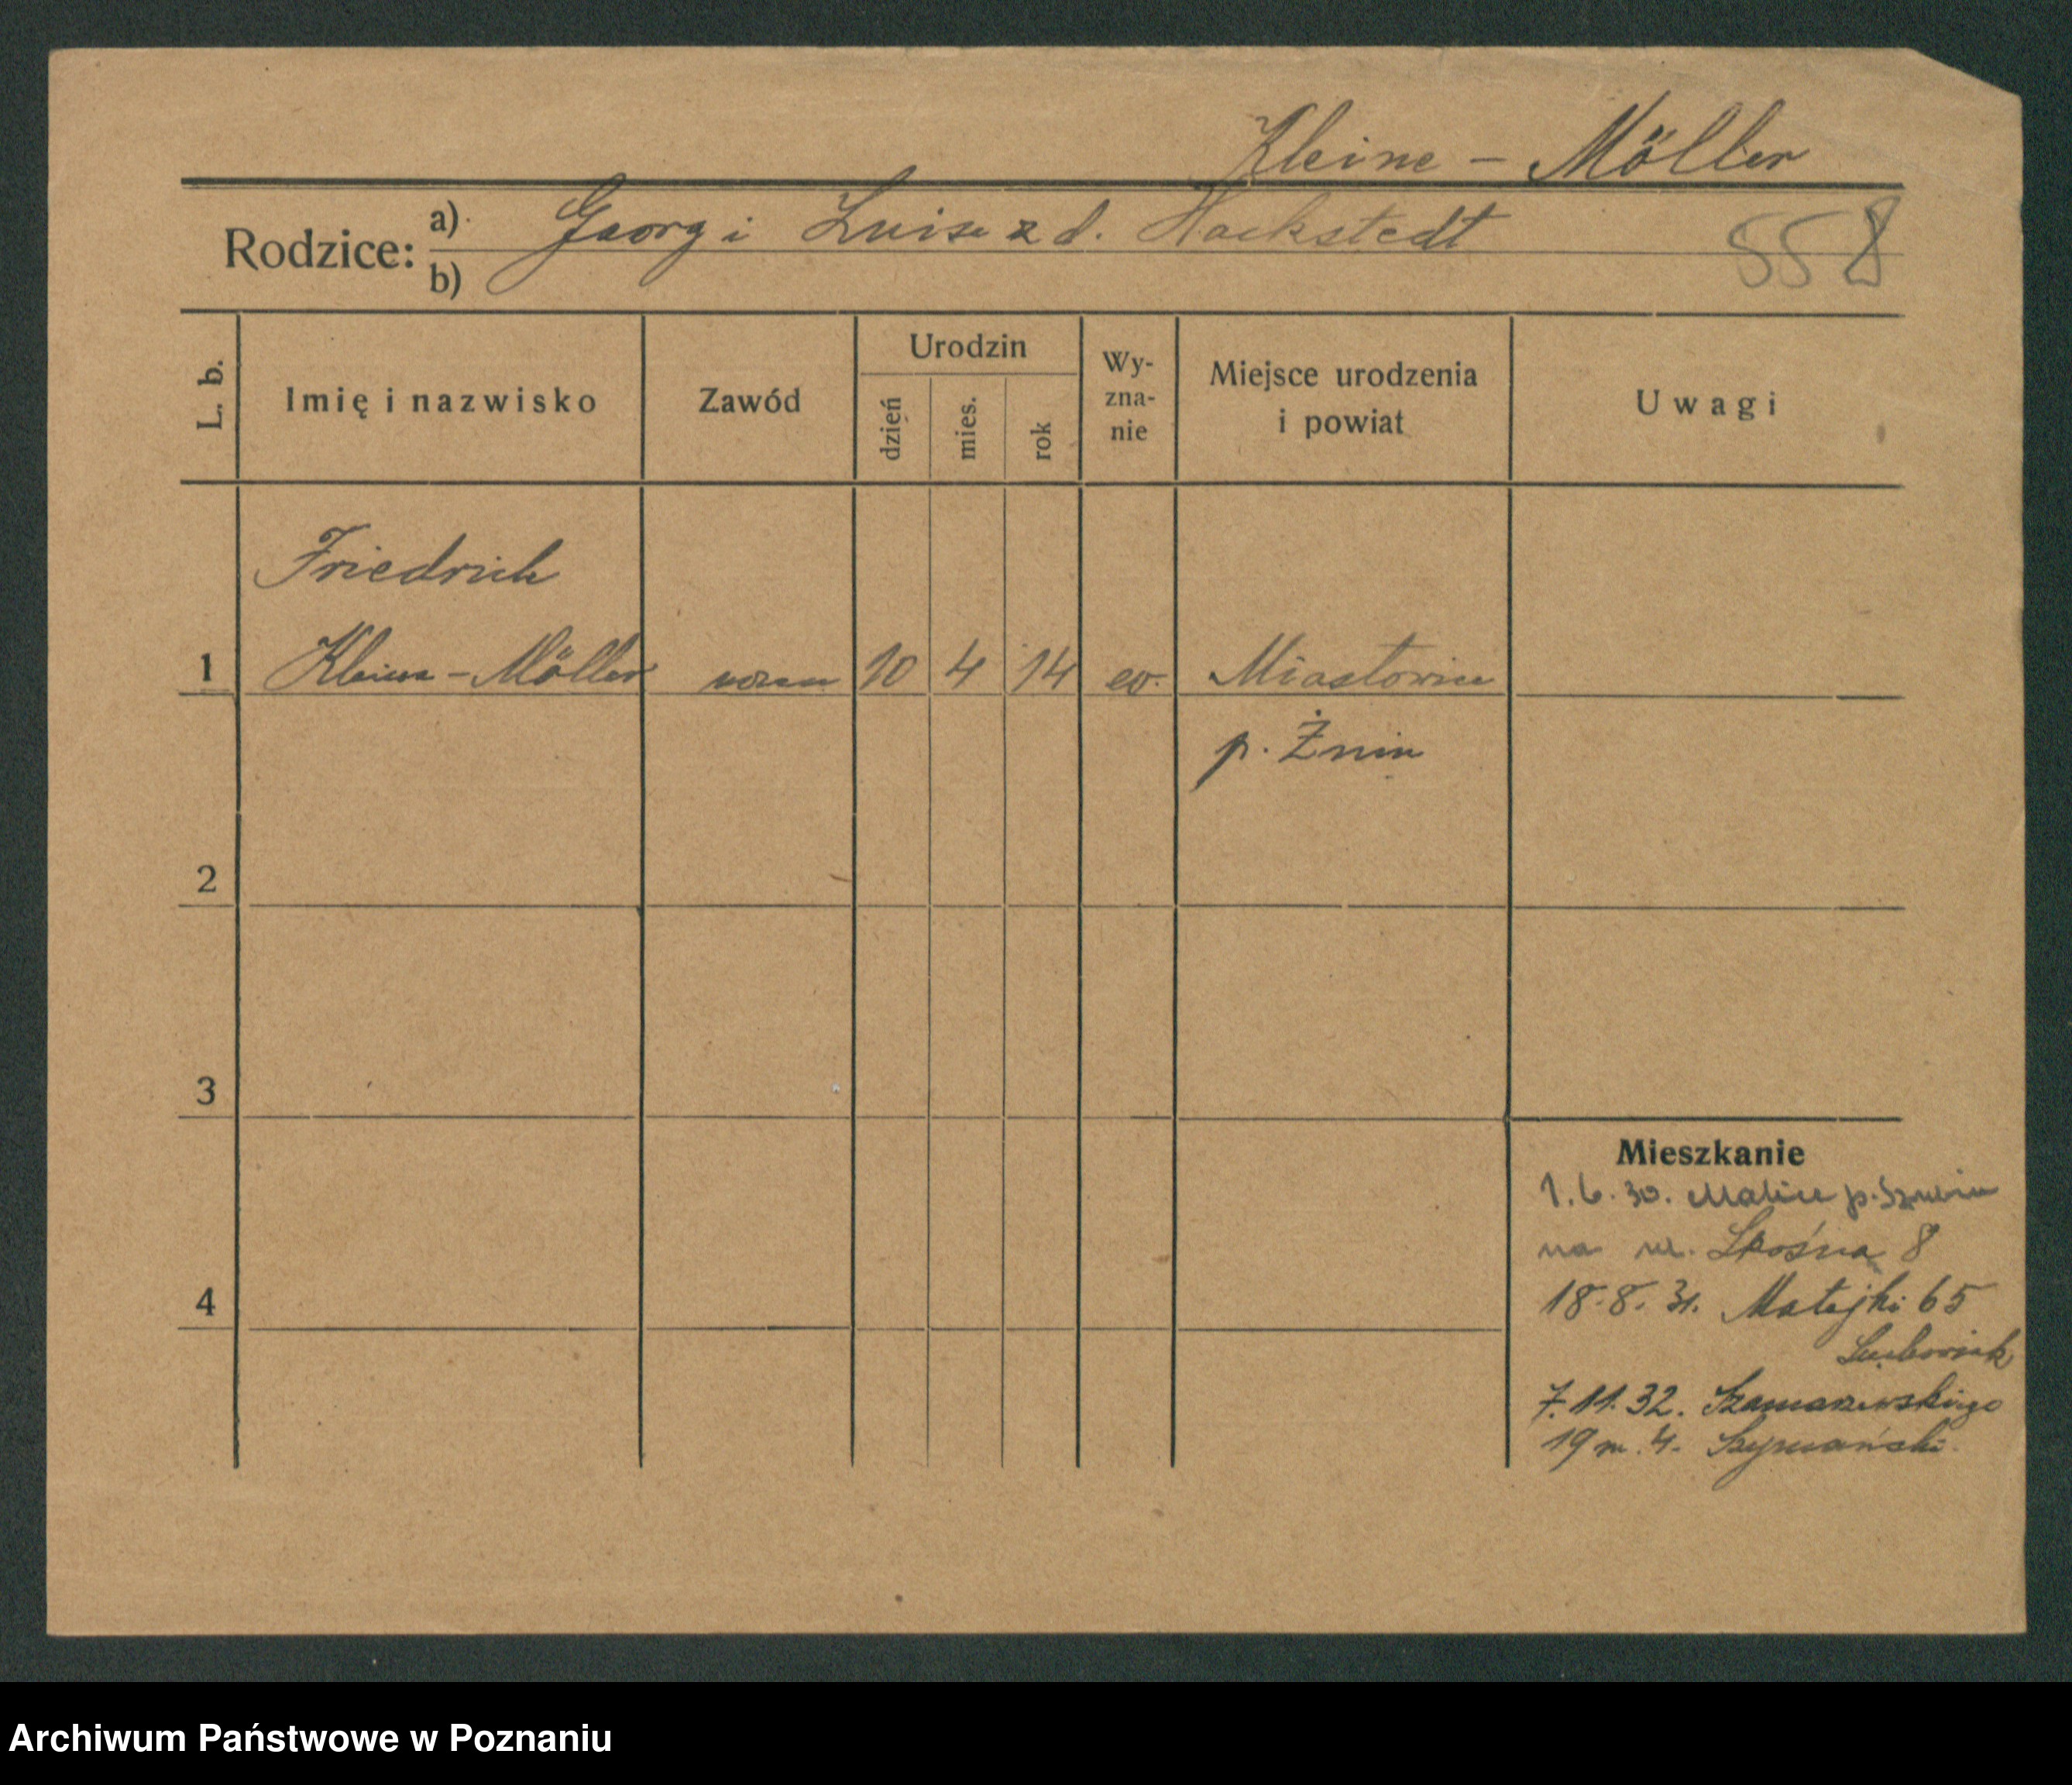 Kleine - Möller
Rodzice: a) Georg i Luise z d. Hackstedt
b)
558
L. b.
Imię i nazwisko
Zawód
Urodzin
dzień
mies.
rok
Wy-
zna-
nie
Miejsce urodzenia
i powiat
Uwagi
Friedrich
1 Kleine - Möller uczeń 10 4 14 ew. Miastowice
p. Żnin
2
3
4
Mieszkanie
1.6.30. Malice p. Szubin
na ul. Skośna 8
18.8.31. Matejki 65
7.11.32. Szamarzewskiego
19 m. 4. Szymański
Archiwum Państwowe w Poznaniu